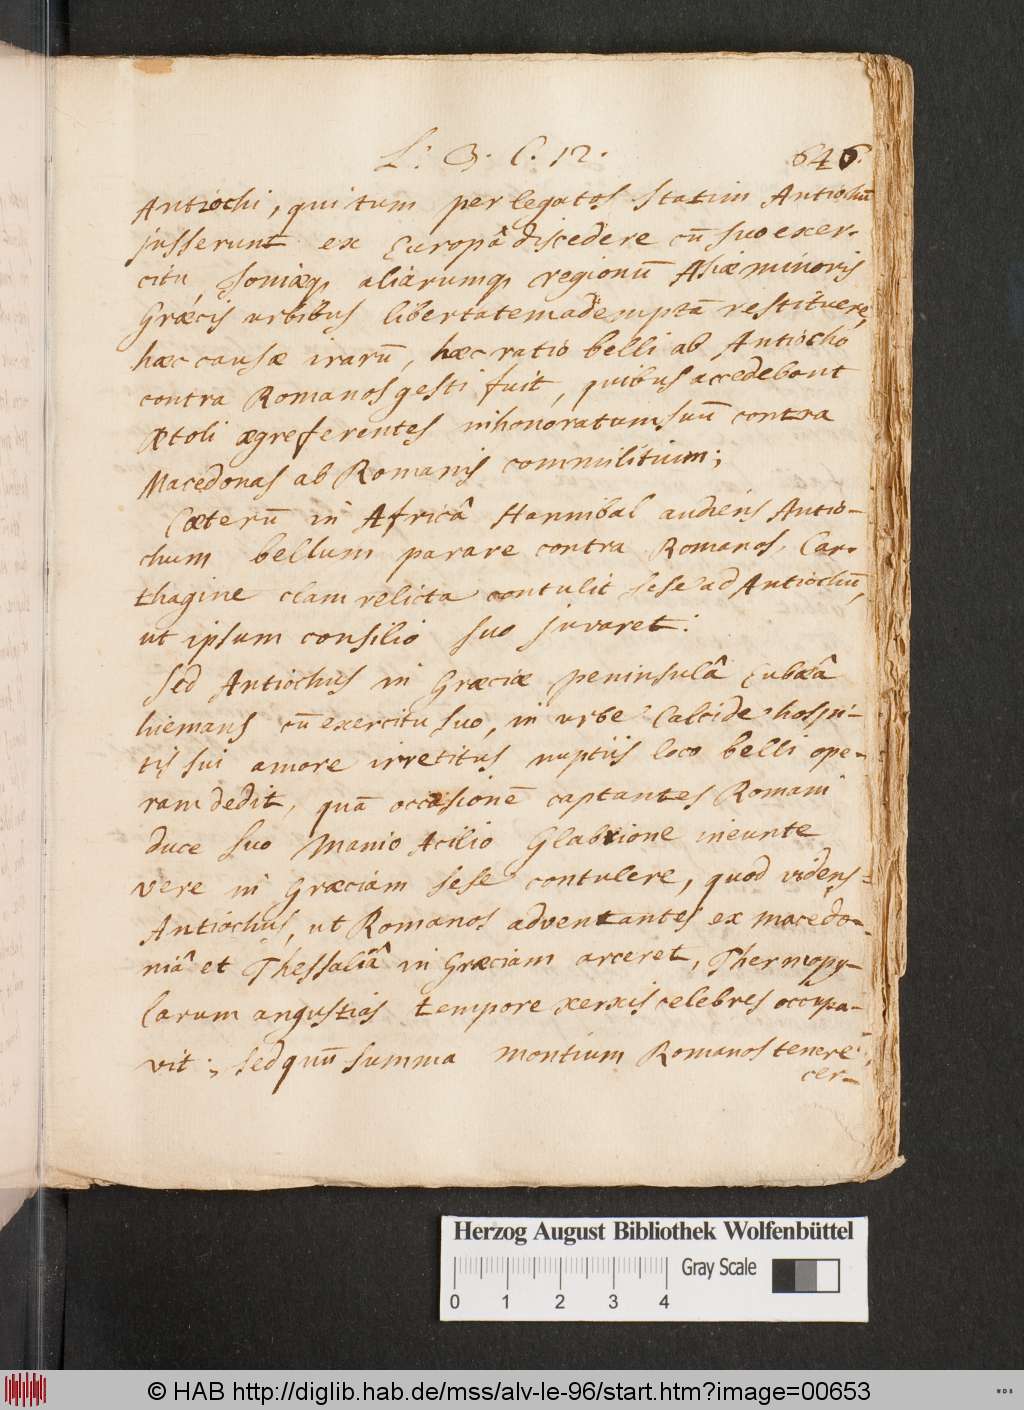 L: 3. C. 12. 646.
Antiochi, qui tum per legatos statim Antiochū
jusserunt ex Europâ discedere cū suo exer-
citu, Ioniæq, aliarumq, regionū Asiæ minoris
Græcis urbibus libertatem ademptā restituere,
hæc causæ irarū, hæc ratio belli ab Antiocho
contra Romanos gesti fuit, quibus accedebant
Ætoli ægre ferentes inhonoratum suū contra
Macedonas ab Romanis commilitium;
Cæterū in Africâ Hannibal audiens Antio-
chum bellum parare contra Romanos, Car-
thagine clam relicta contulit sese ad Antiochū,
ut ipsum consilio suo juvaret:
Sed Antiochus in Græciæ peninsulâ Eubæâ
hiemans cū exercitu suo, in urbe Calcide hospi-
tis sui amore irretitus nuptiis loco belli ope-
ram dedit, quā occasionē captantes Romani
duce suo Manio Acilio Glabrione ineunte
vere in Græciam sese contulere, quod videns
Antiochus, ut Romanos adventantes ex Macedo-
niâ et Thessaliâ in Græciam arceret, Thermopy-
larum angustias tempore Xerxis celebres occupa-
vit; sed quū summa montium Romanos tenere
cer-
Herzog August Bibliothek Wolfenbüttel
Gray Scale
0 1 2 3 4
© HAB http://diglib.hab.de/mss/alv-le-96/start.htm?image=00653